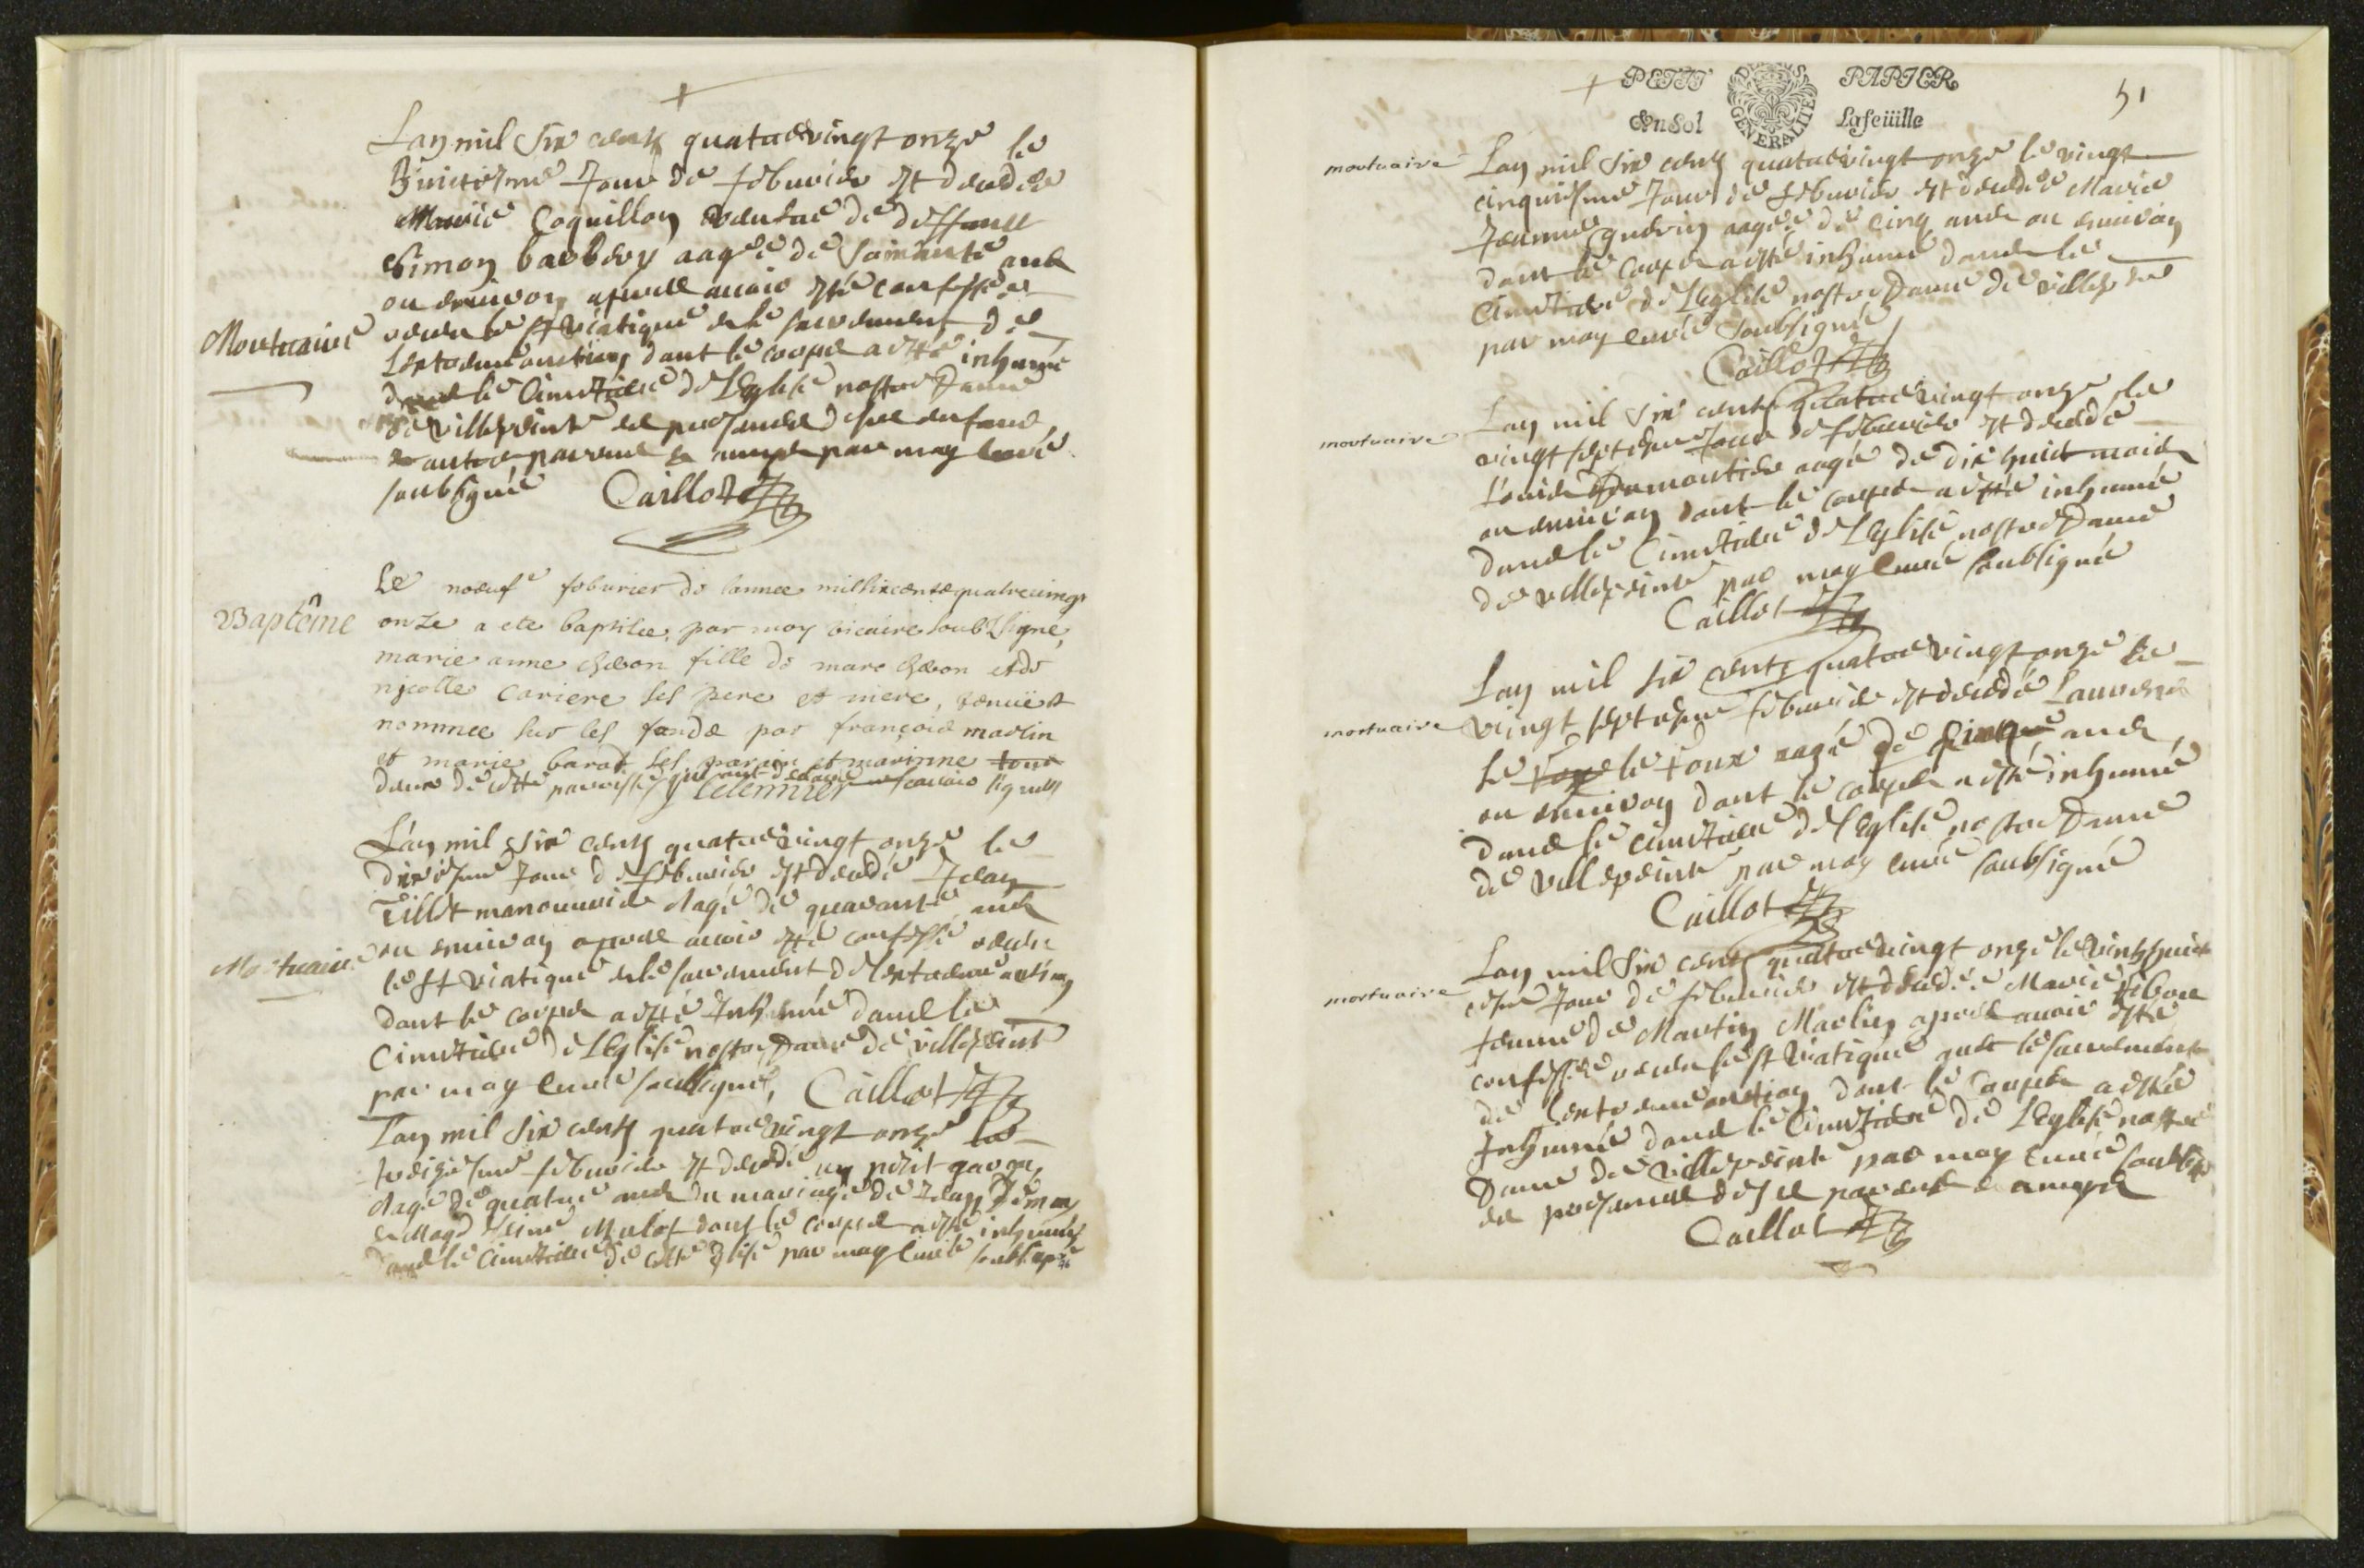 Lan mil six cents quatrevingt onze le
huictiesme Jour de febvrier est decedée
Marie Coquillon veufve de deffunct
Simon barbery aagée de soixante ans
ou environ apres avoir esté confessée
Mortuaire
receu le st viatique et le sacrement de
Lextreme onction dont le corps a esté inhumé
dans le Cimetiere de Leglise nostre Dame
de villepeinte en presence de ses enfans
et autres parens et amys par moy Curé
soubsigné Caillot
Baptême
Le noeufe febvrier de lannee mil six cents quatre uingt
onze a ete baptisee par moy vicaire soubsigne
marie anne cheron fille de marc cheron et de
nicolle cariere ses pere et mere, tenüe et
nommee sur les fonds par françois martin
et marie barat ses parain et marinne tous
deux de cette paroisse qui ont declaré ne scavoir signer
Lan mil six cents quatrevingt onze le
dixiesme Jour de febvrier est decedé Jean
Tillet manouvrier Aagé de quarante ans
Mortuaire
ou environ apres avoir esté confessé receu
le st viatique et le sacrement de lextreme onction
dont le corps a esté Inhumé dans le
Cimetiere de LEglise nostre Dame de villepeint
par moy Curé soubsigné, Caillot
Lan mil six cents quatrevingt onze le
treiziesme febvrier est decedé un petit garcon
Aagé de quatre ans du mariage de Jean
et Magdeleine Mulot dont le corps a esté inhumé
dans le Cimetiere de cette Eglise par moy Curé soubsigné
PETIT PAPIER
Un Sol La feüille
GENERALITE
51
mortuaire
Lan mil six cents quatrevingt onze le vingt
cinquiesme Jour de febvrier est decedée Marie
Jeanne guerin aagée de cinq ans ou environ
dont le corps a esté inhumé dans le
Cimetiere de Leglise nostre Dame de villepeinte
par moy curé soubsigné
Caillot
mortuaire
Lan mil six cents quatrevingt onze le
vingt septiesme Jour de febvrier est decedé
Louis aagé de dix huict mois
ou environ dont le corps a esté inhumé
dans le Cimetiere de LEglise nostre Dame
de villepeinte par moy Curé soubsigné
Caillot
Lan mil six cents quatrevingt onze le
mortuaire
vingt septiesme febvrier est decedé Laurens
le Roux aagé de cinq ans
ou environ dont le corps a esté inhumé
dans le cimetiere de LEglise nostre Dame
de villepeinte par moy curé soubsigné
Caillot
Lan mil six cents quatrevingt onze le vingt huict
mortuaire
iesme Jour de febvrier est decedée Marie
femme de Martin Martin apres avoir esté
confessée receu le st Viatique avec le sacrement
de lextreme onction dont le corps a esté
Inhumé dans le Cimetiere de LEglise nostre
Dame de villepeinte par moy curé soubsigné
en presence de ses parens et amys
Caillot